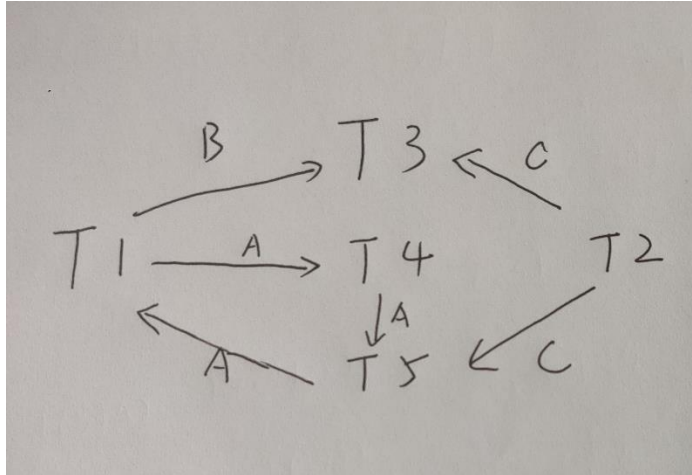 B T3 C
T1 A T4 T2
A
A T5 C